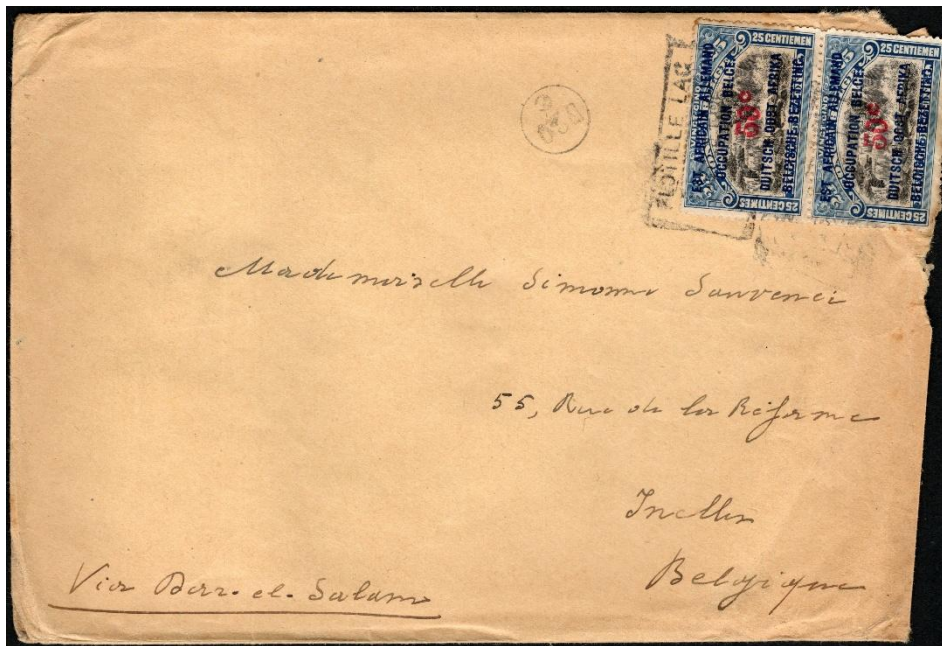 FLOTILLE LAC
25 CENTIEMEN
EST AFRICAIN ALLEMAND
OCCUPATION BELGE
50c
DUITSCH OOST AFRIKA
BELGISCHE BEZETTING
25 CENTIMES
25 CENTIEMEN
EST AFRICAIN ALLEMAND
OCCUPATION BELGE
50c
DUITSCH OOST AFRIKA
BELGISCHE BEZETTING
25 CENTIMES
Mademoiselle Simonne
55, Rue de la Réforme
Ixelles
Belgique
Via Dar-el-Salam